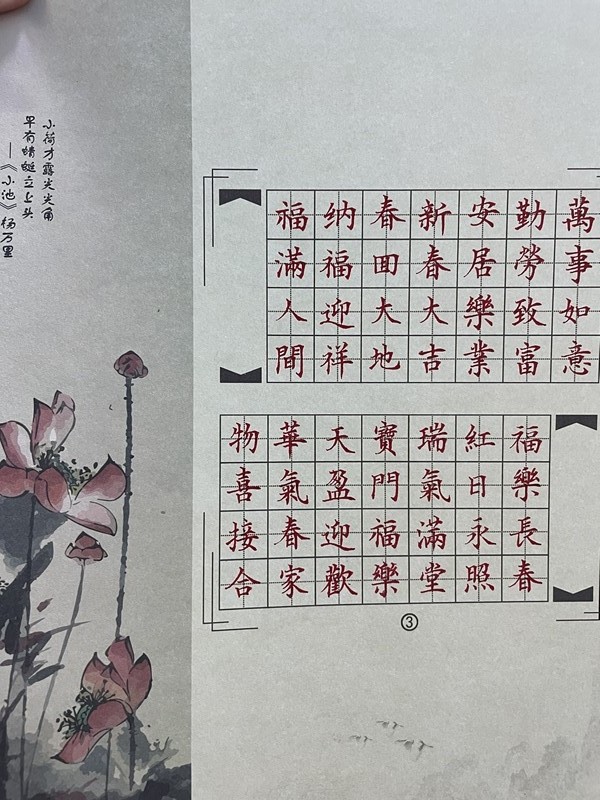 小荷才露尖尖角
早有蜻蜓立上头
—《小池》杨万里
萬事如意
勤勞致富
安居樂業
新春大吉
春囬大地
纳福迎祥
福滿人間
福樂長春
紅日永照
瑞氣滿堂
物華天寶
喜氣盈門
接春迎福
合家歡樂
③